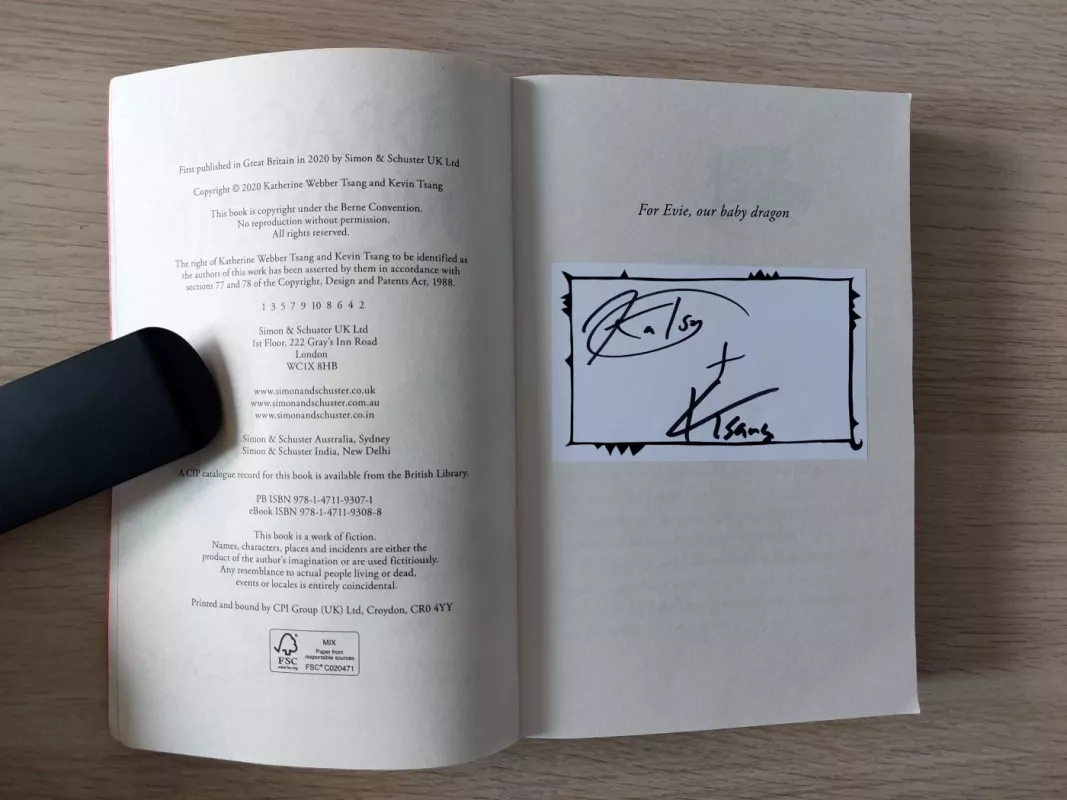 First published in Great Britain in 2020 by Simon & Schuster UK Ltd
Copyright © 2020 Katherine Webber Tsang and Kevin Tsang
This book is copyright under the Berne Convention.
No reproduction without permission.
All rights reserved.
The right of Katherine Webber Tsang and Kevin Tsang to be identified as
the authors of this work has been asserted by them in accordance with
sections 77 and 78 of the Copyright, Design and Patents Act, 1988.
1 3 5 7 9 10 8 6 4 2
Simon & Schuster UK Ltd
1st Floor, 222 Gray's Inn Road
London
WC1X 8HB
www.simonandschuster.co.uk
www.simonandschuster.com.au
www.simonandschuster.co.in
Simon & Schuster Australia, Sydney
Simon & Schuster India, New Delhi
A CIP catalogue record for this book is available from the British Library.
PB ISBN 978-1-4711-9307-1
eBook ISBN 978-1-4711-9308-8
This book is a work of fiction.
Names, characters, places and incidents are either the
product of the author's imagination or are used fictitiously.
Any resemblance to actual people living or dead,
events or locales is entirely coincidental.
Printed and bound by CPI Group (UK) Ltd, Croydon, CR0 4YY
MIX
Paper from
responsible sources
FSC
www.fsc.org
FSC® C020471
For Evie, our baby dragon
+
KTsang